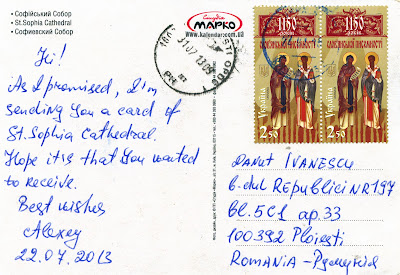 • Софійський Собор
• St.Sophia Cathedral
• Софиевский Собор
Студія
МАРКО
www.kalendar.com.ua
1150
СЛОВ'ЯНСЬКОЇ ПИСЕМНОСТІ
Україна
2.50
1150
СЛОВ'ЯНСЬКОЇ ПИСЕМНОСТІ
Україна
2.50
Hi!
As I promised, I'm
sending you a card of
St.Sophia Cathedral.
Hope it is that you wanted
to receive.
Best wishes
Alexey
22.07.2013
DANUT IVANESCU
b-dul REpublicii NR 197
bl. 5C1 ap.33
100392 Ploiești
ROMANIA - Румунія